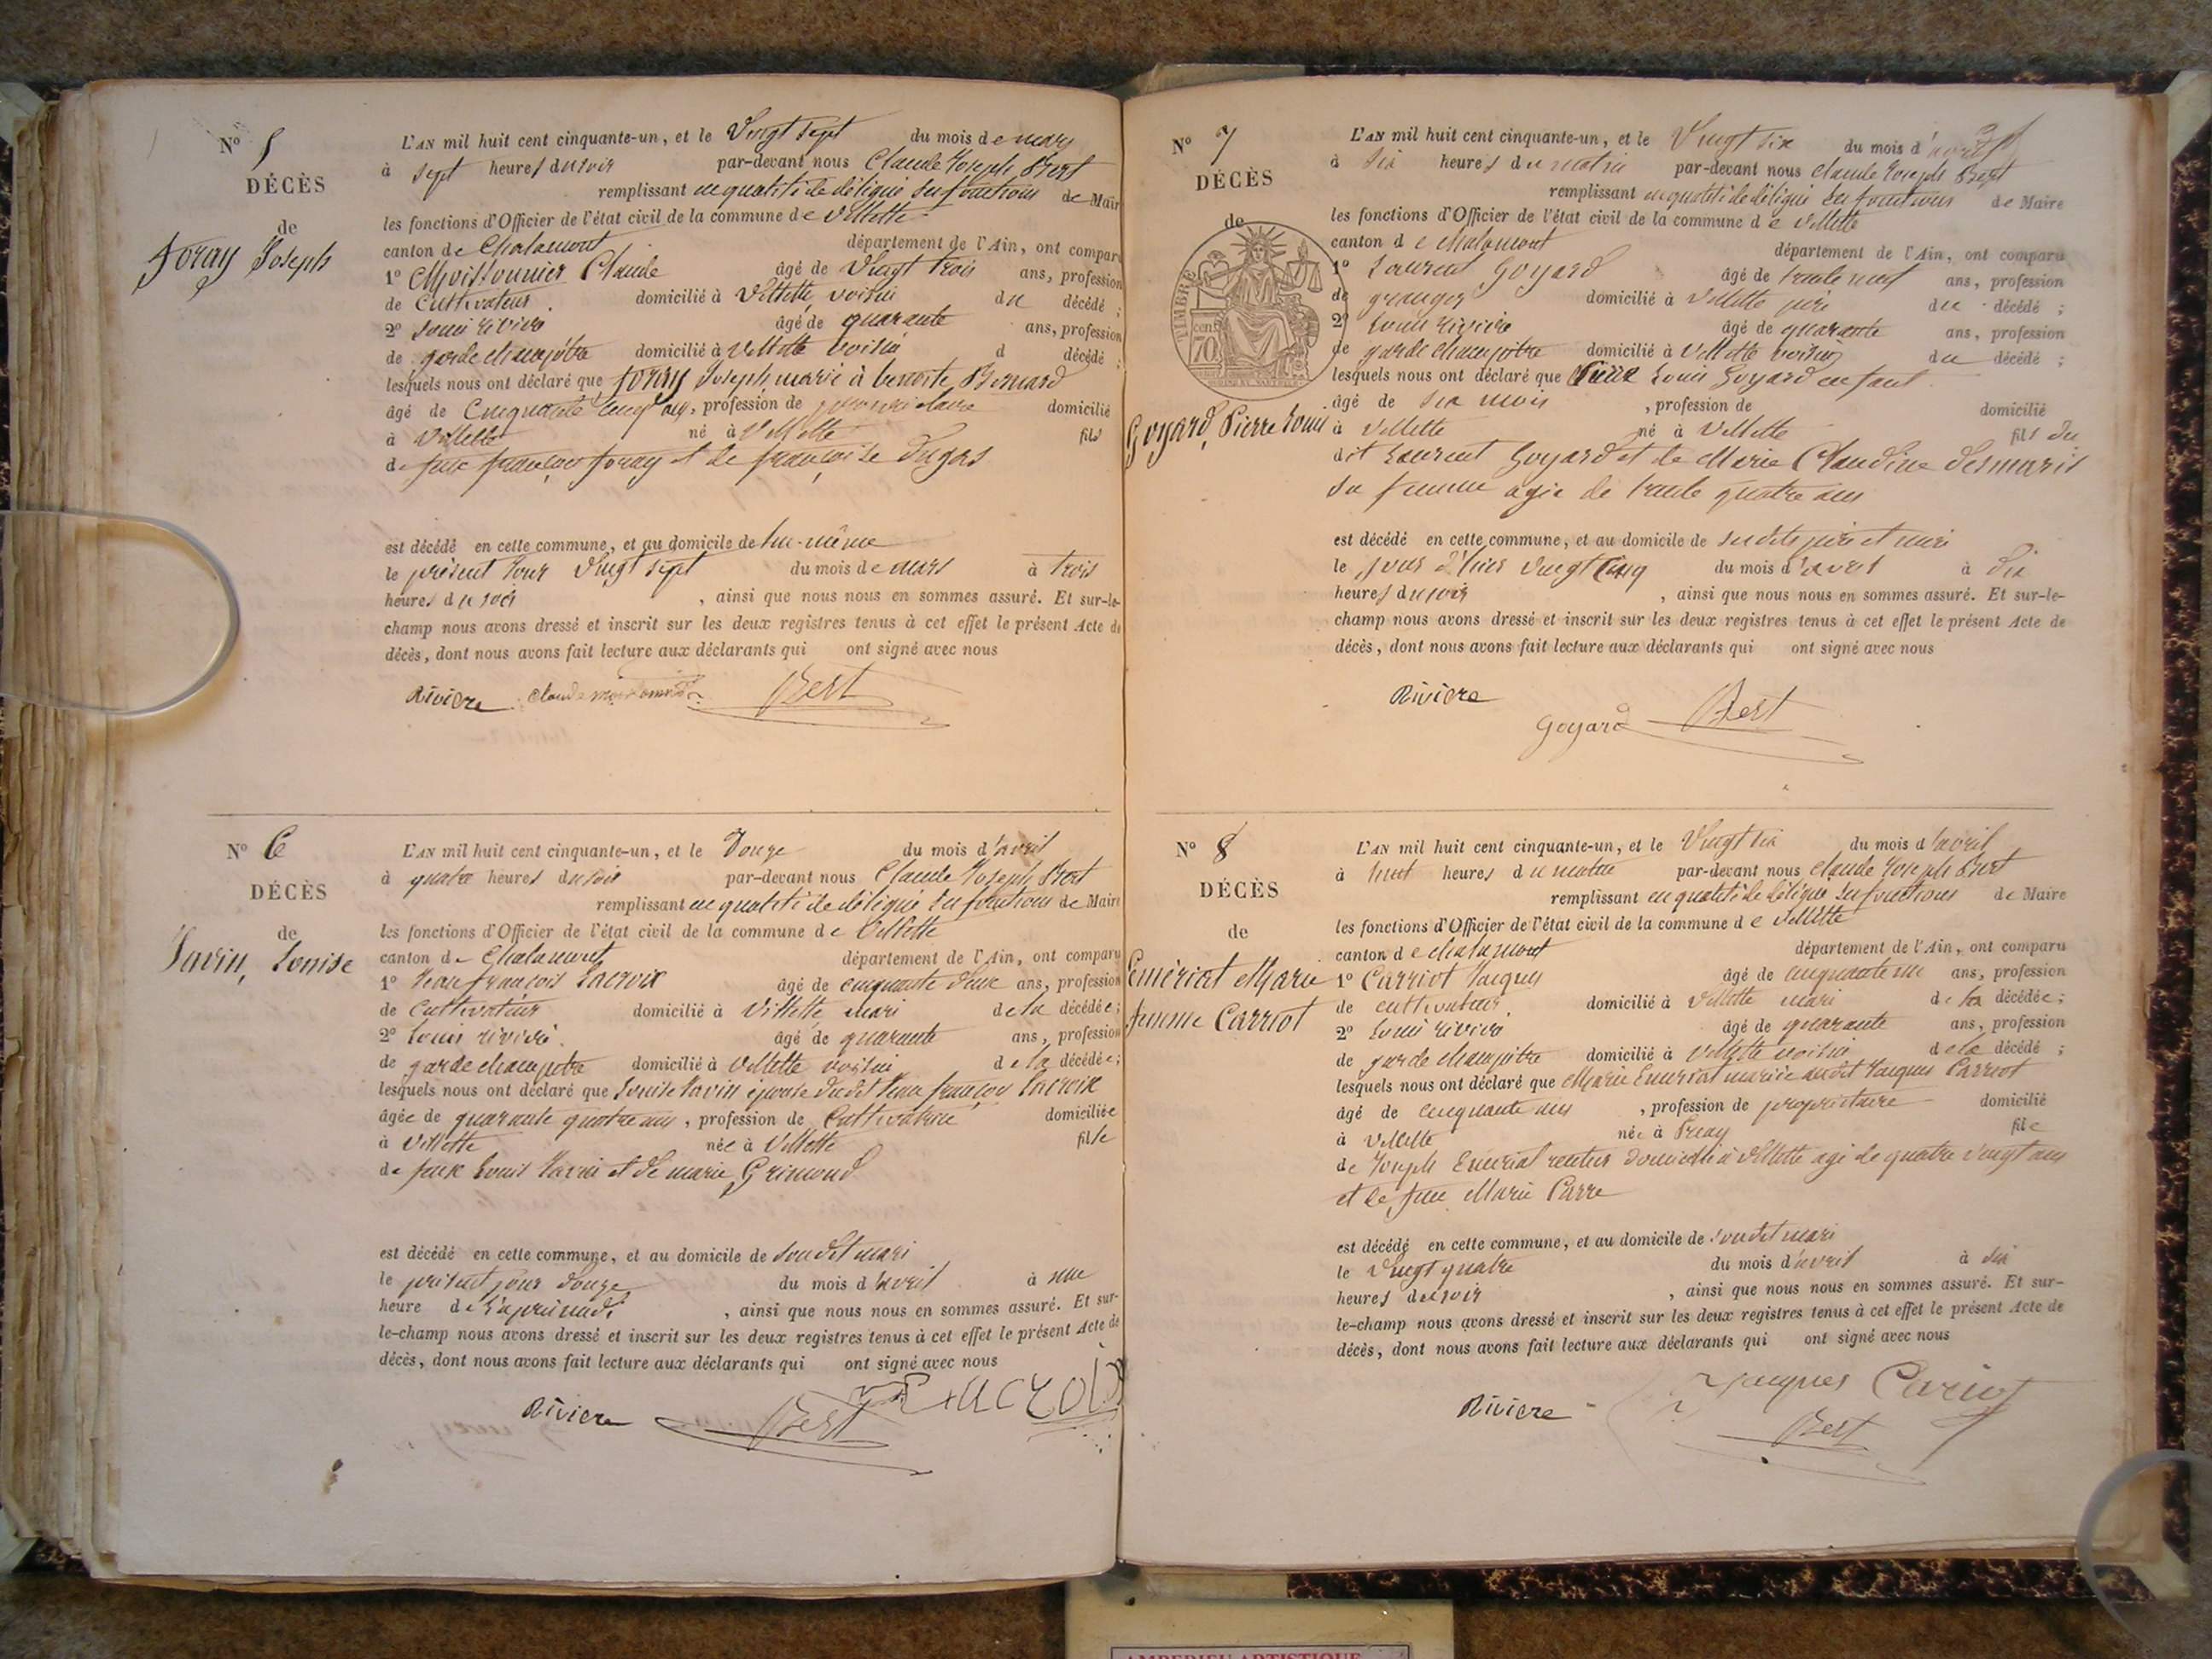 N° 5
DÉCÈS
de
Foray Joseph
L'AN mil huit cent cinquante-un, et le Vingt sept du mois de mars
à sept heures du soir par-devant nous Claude Joseph Bert
remplissant en qualité de délégué les fonctions de Mair
les fonctions d'Officier de l'état civil de la commune de Villette
canton de Chalamont département de l'Ain, ont compar
1° Moissonnier Claude âgé de Vingt trois ans, profession
de Cultivateur domicilié à Villette voisin du décédé ;
2° Louis rivière âgé de quarante ans, profession
de garde champêtre domicilié à Villette voisin d décédé ;
lesquels nous ont déclaré que foray Joseph marié à benoite Bernard
âgé de Cinquante cinq ans, profession de domicilié
à Villette né à Villette fils
de feux françois foray et de françoise Dugas
est décédé en cette commune, et au domicile de lui-même
le présent Jour Vingt sept du mois de mars à trois
heures du soir , ainsi que nous nous en sommes assuré. Et sur-le-
champ nous avons dressé et inscrit sur les deux registres tenus à cet effet le présent Acte de
décès, dont nous avons fait lecture aux déclarants qui ont signé avec nous
Rivière Claude moissonnier Bert
N° 6
DÉCÈS
de
Javin, Louise
L'AN mil huit cent cinquante-un, et le Douze du mois d'avril
à quatre heures du soir par-devant nous Claude Joseph Bert
remplissant en qualité de délégué les fonctions de Maire
les fonctions d'Officier de l'état civil de la commune de Villette
canton de Chalamont département de l'Ain, ont comparu
1° Jean françois Lacroix âgé de cinquante deux ans, profession
de Cultivateur domicilié à Villette mari de la décédée ;
2° Louis rivière âgé de quarante ans, profession
de garde champetre domicilié à Villette voisin de la décédée ;
lesquels nous ont déclaré que Louise Javin épouse du dit Jean françois Lacroix
âgée de quarante quatre ans, profession de Cultivatrice domiciliée
à Villette née à Villette fille
de feux Louis Javin et de marie Grimoud
est décédé en cette commune, et au domicile de son dit mari
le présent jour douze du mois d'avril à une
heure de l'après midi , ainsi que nous nous en sommes assuré. Et sur-
le-champ nous avons dressé et inscrit sur les deux registres tenus à cet effet le présent Acte de
décès, dont nous avons fait lecture aux déclarants qui ont signé avec nous
Rivière Bert Lacroix
N° 7
DÉCÈS
de
TIMBRE
70 cent
Goyard, Pierre Louis
L'AN mil huit cent cinquante-un, et le Vingt six du mois d'avril
à six heures du matin par-devant nous Claude Joseph Bert
remplissant en qualité de délégué les fonctions de Maire
les fonctions d'Officier de l'état civil de la commune de Villette
canton de chalamont département de l'Ain, ont comparu
1° Laurent Goyard âgé de trente neuf ans, profession
de granger domicilié à Villette père du décédé ;
2° Louis Rivière âgé de quarante ans, profession
de garde champêtre domicilié à Villette voisin du décédé ;
lesquels nous ont déclaré que Pierre Louis Goyard enfant
âgé de six mois , profession de domicilié
à Villette né à Villette fils du
dit Laurent Goyard et de Marie Claudine Desmaris
sa femme agée de trente quatre ans
est décédé en cette commune, et au domicile de ses dits père et mère
le jour d'hier vingt cinq du mois d'avril à dix
heures du soir , ainsi que nous nous en sommes assuré. Et sur-le-
champ nous avons dressé et inscrit sur les deux registres tenus à cet effet le présent Acte de
décès, dont nous avons fait lecture aux déclarants qui ont signé avec nous
Rivière
Goyard Bert
N° 8
DÉCÈS
de
Emériat Marie
femme Carriot
L'AN mil huit cent cinquante-un, et le Vingt six du mois d'avril
à huit heures du matin par-devant nous Claude Joseph Bert
remplissant en qualité de délégué les fonctions de Maire
les fonctions d'Officier de l'état civil de la commune de Villette
canton de chalamont département de l'Ain, ont comparu
1° Carriot Jacques âgé de ans, profession
de cultivateur domicilié à Villette mari de la décédée ;
2° Louis rivière âgé de quarante ans, profession
de garde champêtre domicilié à Villette voisin de la décédé ;
lesquels nous ont déclaré que Marie Emeriat mariée audit Jacques Carriot
âgé de cinquante ans , profession de propriétaire domicilié
à Villette née à Priay file
de Joseph Emeriat rentier domicilié à Villette agé de quatre vingt ans
et de feue Marie Parre
est décédé en cette commune, et au domicile de son dit mari
le Vingt quatre du mois d'avril à six
heures du soir , ainsi que nous nous en sommes assuré. Et sur-
le-champ nous avons dressé et inscrit sur les deux registres tenus à cet effet le présent Acte de
décès, dont nous avons fait lecture aux déclarants qui ont signé avec nous
Rivière Jacques Cariot
Bert
AMBERIEU ARTISTIQUE